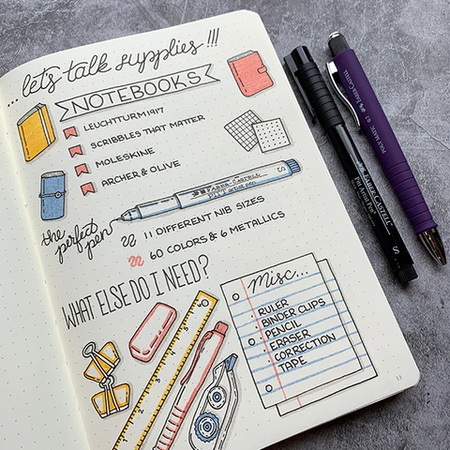 ... let's talk supplies!!!
NOTEBOOKS
LEUCHTTURM1917
SCRIBBLES THAT MATTER
MOLESKINE
ARCHER & OLIVE
the perfect pen
FABER CASTELL
Pitt artist pen
S
11 DIFFERENT NIB SIZES
60 COLORS & 6 METALLICS
WHAT ELSE DO I NEED?
Misc...
RULER
BINDER CLIPS
PENCIL
ERASER
CORRECTION
TAPE
FABER-CASTELL
Pitt Artist Pen
S
FABER-CASTELL
POLY MATIC